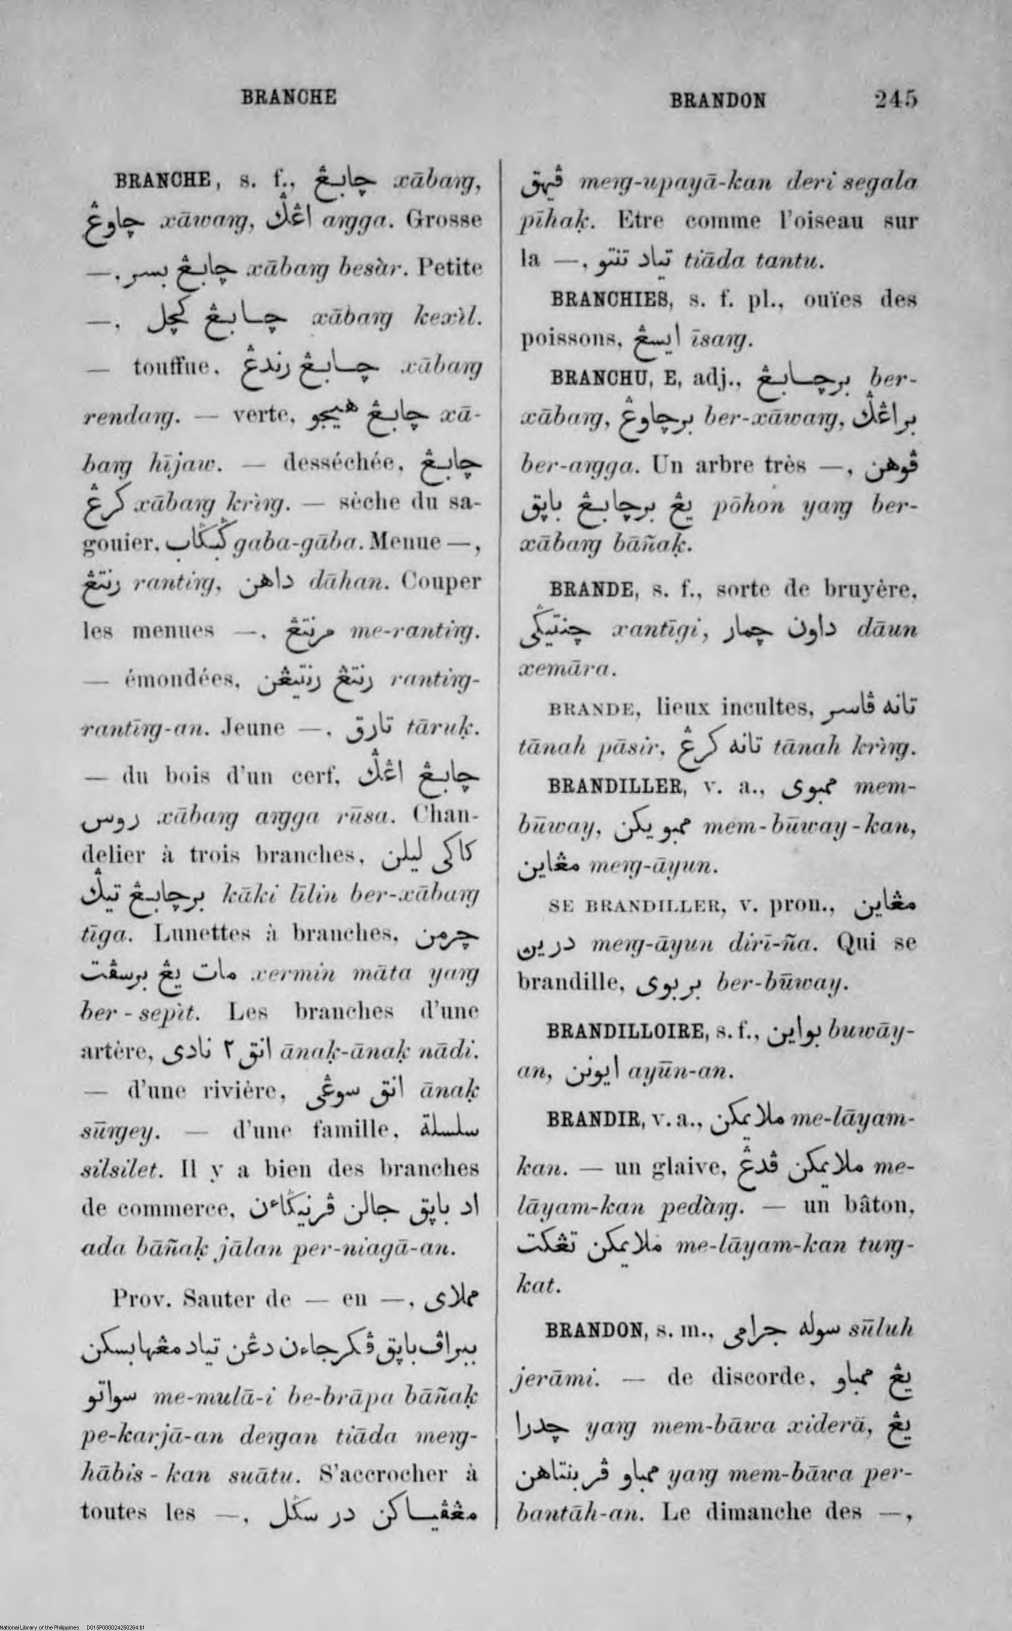 BRANCHE
BRANDON 245
BRANCHE, s. f., چابڠ xābaŋ,
چاوڠ xāwaŋ, اڠݢ aŋga. Grosse
—, چابڠ بسر xābaŋ besàr. Petite
—, چابڠ کچل xābaŋ kexìl.
— touffue, چابڠ رندڠ xābaŋ
rendaŋ. — verte, چابڠ هيجو xā-
baŋ hījaw. — desséchée, چابڠ
کرڠ xābaŋ krìŋ. — sèche du sa-
gouier, ݢݢاب gaba-gāba. Menue —,
رنتڠ rantiŋ, داهن dāhan. Couper
les menues —, مرنتڠ me-rantiŋ.
— émondées, رنتڠ رنتيڠن rantiŋ-
rantīŋ-an. Jeune —, تارق tāruḳ.
— du bois d'un cerf, چابڠ اڠݢ
روس xābaŋ aŋga rūsa. Chan-
delier à trois branches, کاکى ليلن
برچابڠ تيݢ kāki līlin ber-xābaŋ
tīga. Lunettes à branches, چرمن
مات يڠ برسڤت xermin māta yaŋ
ber-sepìt. Les branches d'une
artère, انق٢ نادى ānaḳ-ānaḳ nādi.
— d'une rivière, انق سوڠى ānaḳ
sūŋey. — d'une famille, سلسلة
silsilet. Il y a bien des branches
de commerce, اد باڽق جالن ڤرنيݢاءن
ada bāñaḳ jālan per-niagā-an.
Prov. Sauter de — en —, مملاى
ببراڤ باڽق ڤکرجاءن دڠن تياد مڠهابسکن
سواتو me-mulā-i be-brāpa bāñaḳ
pe-karjā-an deŋan tiāda meŋ-
hābis-kan suātu. S'accrocher à
toutes les —, مڠڤياکن در سݢل
ڤيهق meŋ-upayā-kan deri segala
pīhaḳ. Etre comme l'oiseau sur
la —, تياد تنتو tiāda tantu.
BRANCHIES, s. f. pl., ouïes des
poissons, ايسڠ īsaŋ.
BRANCHU, E, adj., برچابڠ ber-
xābaŋ, برچاوڠ ber-xāwaŋ, براڠݢ
ber-aŋga. Un arbre très —, ڤوهن
يڠ برچابڠ باڽق pōhon yaŋ ber-
xābaŋ bāñaḳ.
BRANDE, s. f., sorte de bruyère,
چنتيݢى xantīgi, داون چمار dāun
xemāra.
BRANDE, lieux incultes, تانه ڤاسر
tānah pāsir, تانه کرڠ tānah krìŋ.
BRANDILLER, v. a., ممبوى mem-
būway, ممبويکن mem-būway-kan,
مڠاين meŋ-āyun.
SE BRANDILLER, v. pron., مڠاين
درين meŋ-āyun dirī-ña. Qui se
brandille, بربوى ber-būway.
BRANDILLOIRE, s. f., بواين buwāy-
an, ايونن ayūn-an.
BRANDIR, v. a., ملايمکن me-lāyam-
kan. — un glaive, ملايمکن ڤدڠ me-
lāyam-kan pedàŋ. — un bâton,
ملايمکن تڠکت me-lāyam-kan tuŋ-
kat.
BRANDON, s. m., سوله جرامى sūluh
jerāmi. — de discorde, يڠ ممباو
چدرا yaŋ mem-bāwa xiderā, يڠ
ممباو ڤربنتاهن yaŋ mem-bāwa per-
bantāh-an. Le dimanche des —,
National Library of the Philippines